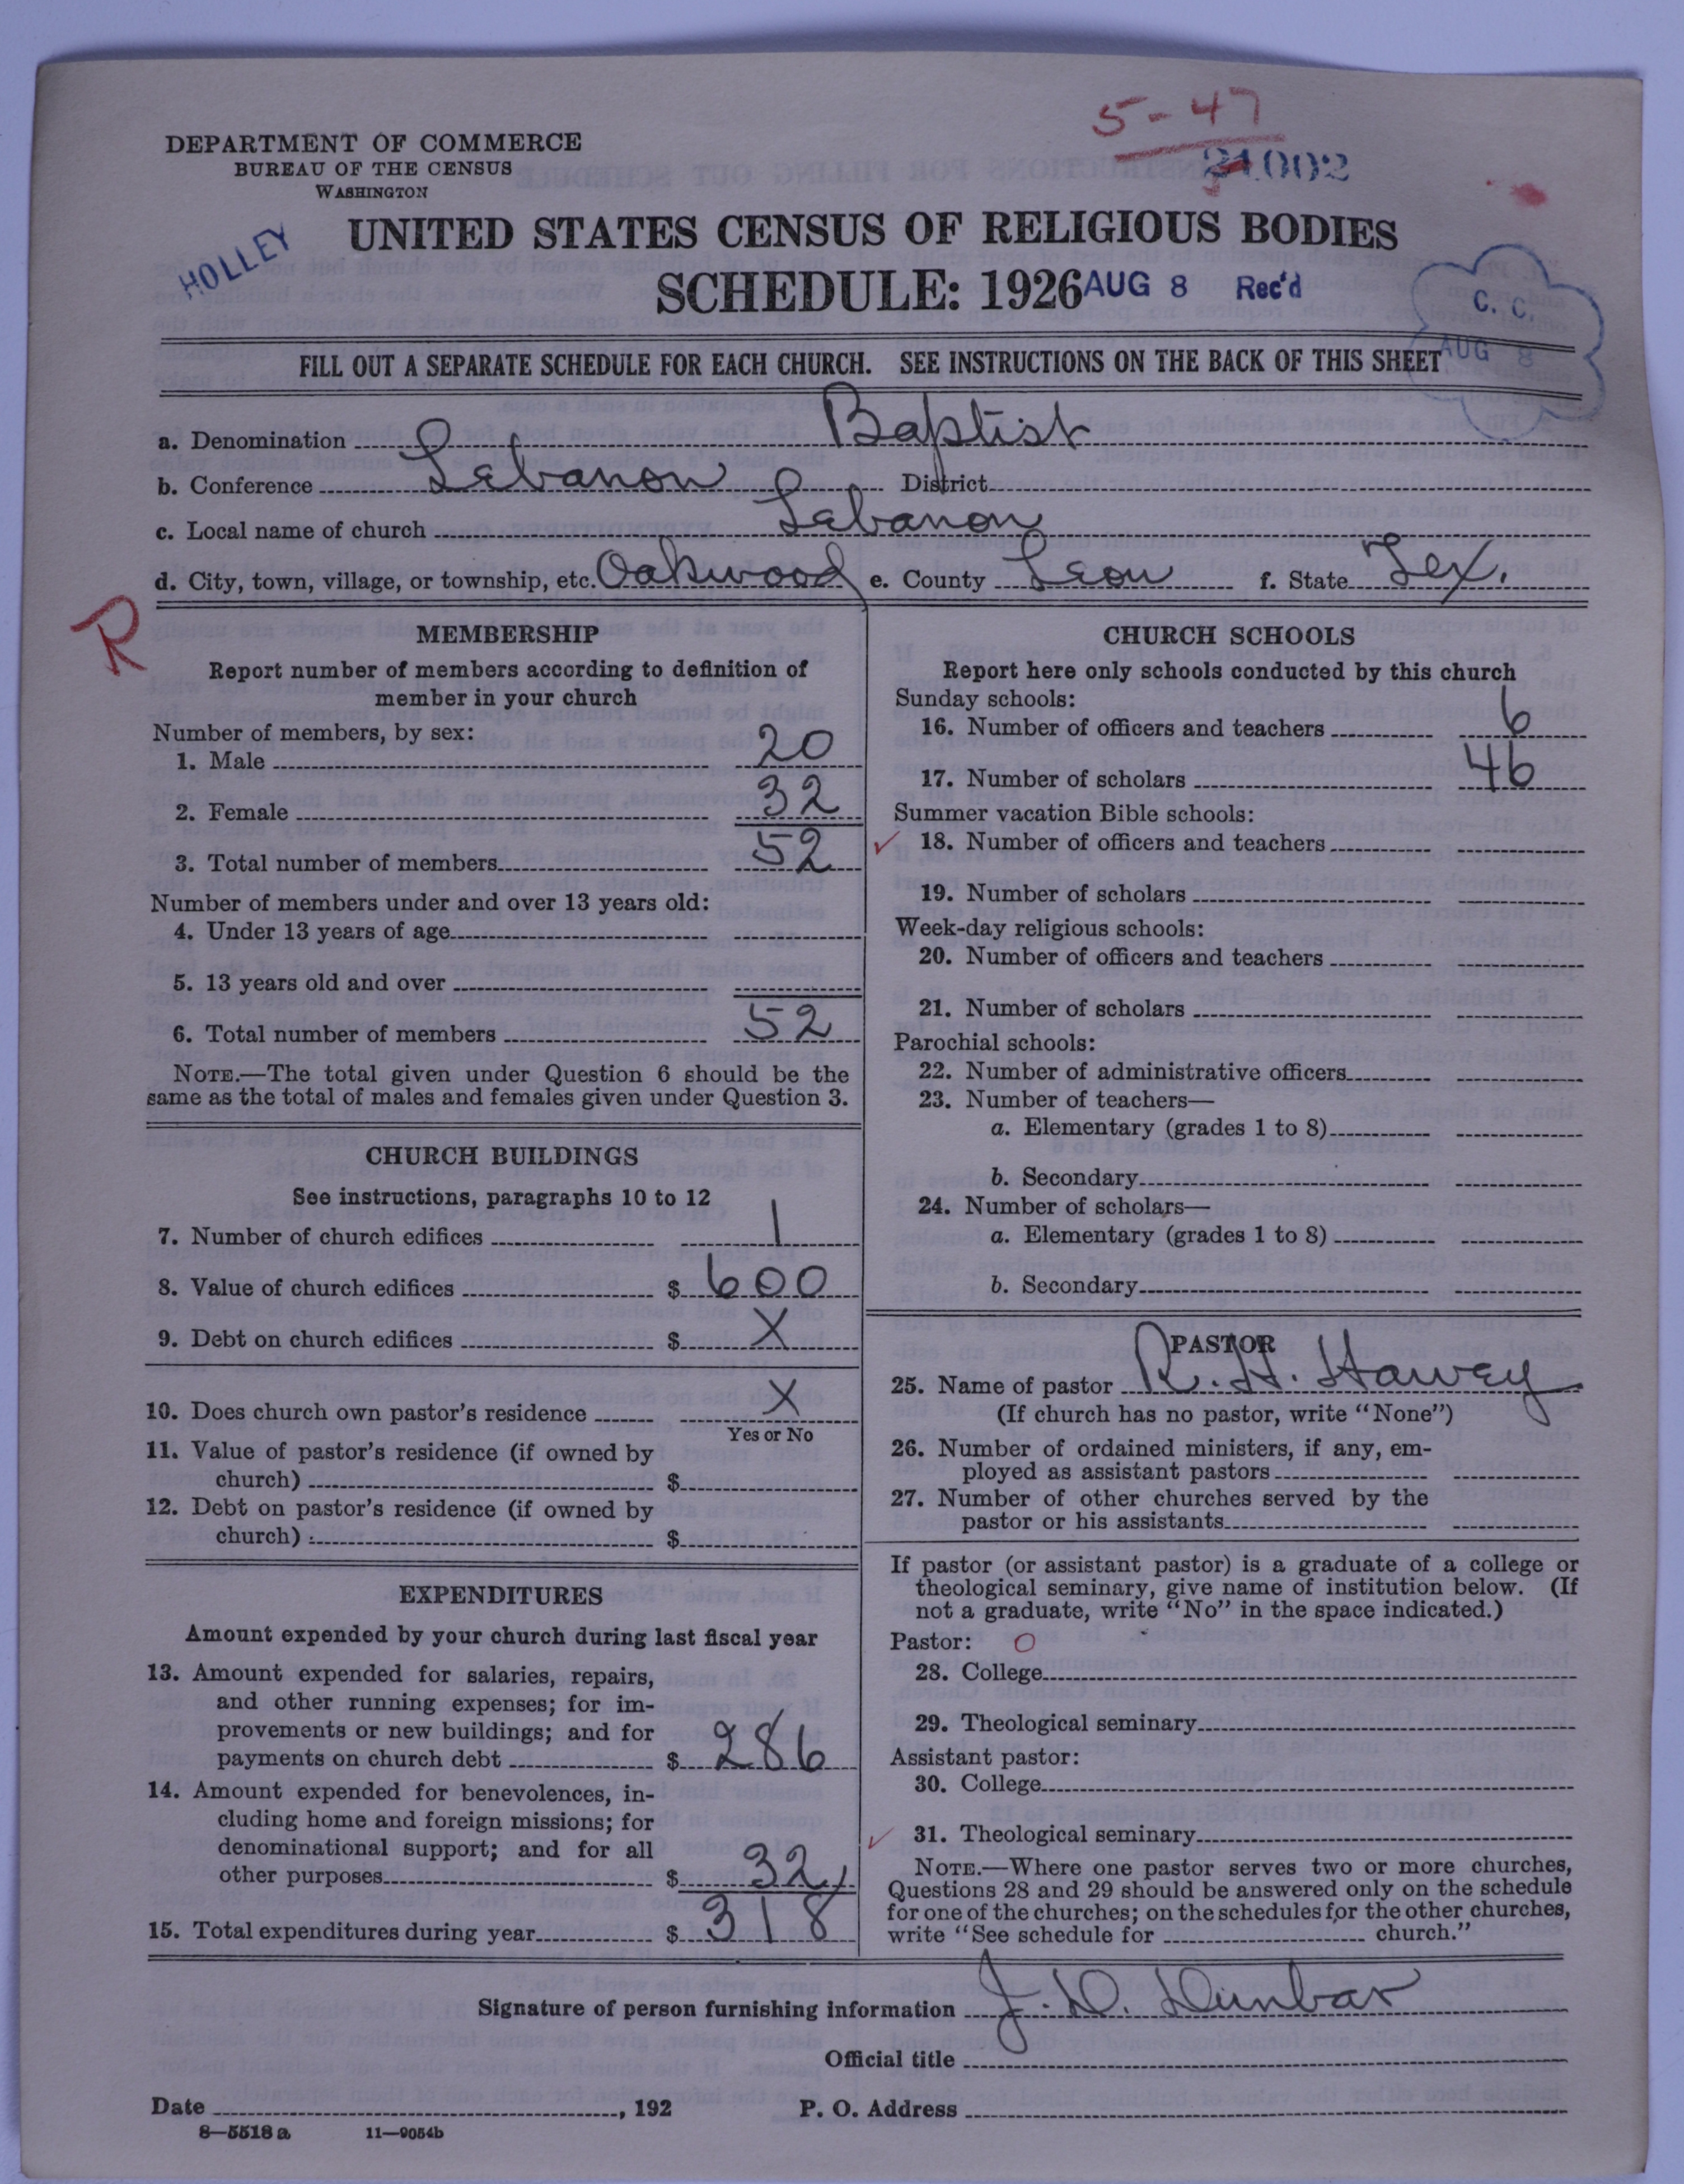 5-47
DEPARTMENT OF COMMERCE
BUREAU OF THE CENSUS
WASHINGTON
HOLLEY
UNITED STATES CENSUS OF RELIGIOUS BODIES
SCHEDULE: 1926 AUG 8 Rec'd
C. C.
AUG 8
FILL OUT A SEPARATE SCHEDULE FOR EACH CHURCH. SEE INSTRUCTIONS ON THE BACK OF THIS SHEET
a. Denomination Baptist
b. Conference Lebanon District
c. Local name of church Lebanon
d. City, town, village, or township, etc. Oakwood e. County Leon f. State Tex.
R
MEMBERSHIP
Report number of members according to definition of
member in your church
Number of members, by sex:
1. Male 20
2. Female 32
3. Total number of members 52
Number of members under and over 13 years old:
4. Under 13 years of age
5. 13 years old and over
6. Total number of members 52
NOTE.—The total given under Question 6 should be the
same as the total of males and females given under Question 3.
CHURCH BUILDINGS
See instructions, paragraphs 10 to 12
7. Number of church edifices 1
8. Value of church edifices $ 600
9. Debt on church edifices $ X
10. Does church own pastor's residence X
Yes or No
11. Value of pastor's residence (if owned by
church) $
12. Debt on pastor's residence (if owned by
church) $
EXPENDITURES
Amount expended by your church during last fiscal year
13. Amount expended for salaries, repairs,
and other running expenses; for im-
provements or new buildings; and for
payments on church debt $ 286
14. Amount expended for benevolences, in-
cluding home and foreign missions; for
denominational support; and for all
other purposes $ 32
15. Total expenditures during year $ 318
CHURCH SCHOOLS
Report here only schools conducted by this church
Sunday schools:
16. Number of officers and teachers 6
17. Number of scholars 46
Summer vacation Bible schools:
✓ 18. Number of officers and teachers
19. Number of scholars
Week-day religious schools:
20. Number of officers and teachers
21. Number of scholars
Parochial schools:
22. Number of administrative officers
23. Number of teachers—
a. Elementary (grades 1 to 8)
b. Secondary
24. Number of scholars—
a. Elementary (grades 1 to 8)
b. Secondary
PASTOR
25. Name of pastor R. H. Hawey
(If church has no pastor, write "None")
26. Number of ordained ministers, if any, em-
ployed as assistant pastors
27. Number of other churches served by the
pastor or his assistants
If pastor (or assistant pastor) is a graduate of a college or
theological seminary, give name of institution below. (If
not a graduate, write "No" in the space indicated.)
Pastor: O
28. College
29. Theological seminary
Assistant pastor:
30. College
✓ 31. Theological seminary
NOTE.—Where one pastor serves two or more churches,
Questions 28 and 29 should be answered only on the schedule
for one of the churches; on the schedules for the other churches,
write "See schedule for church."
Signature of person furnishing information J. D. Dunbar
Official title
Date , 192 P. O. Address
8—5518 a 11—9054b